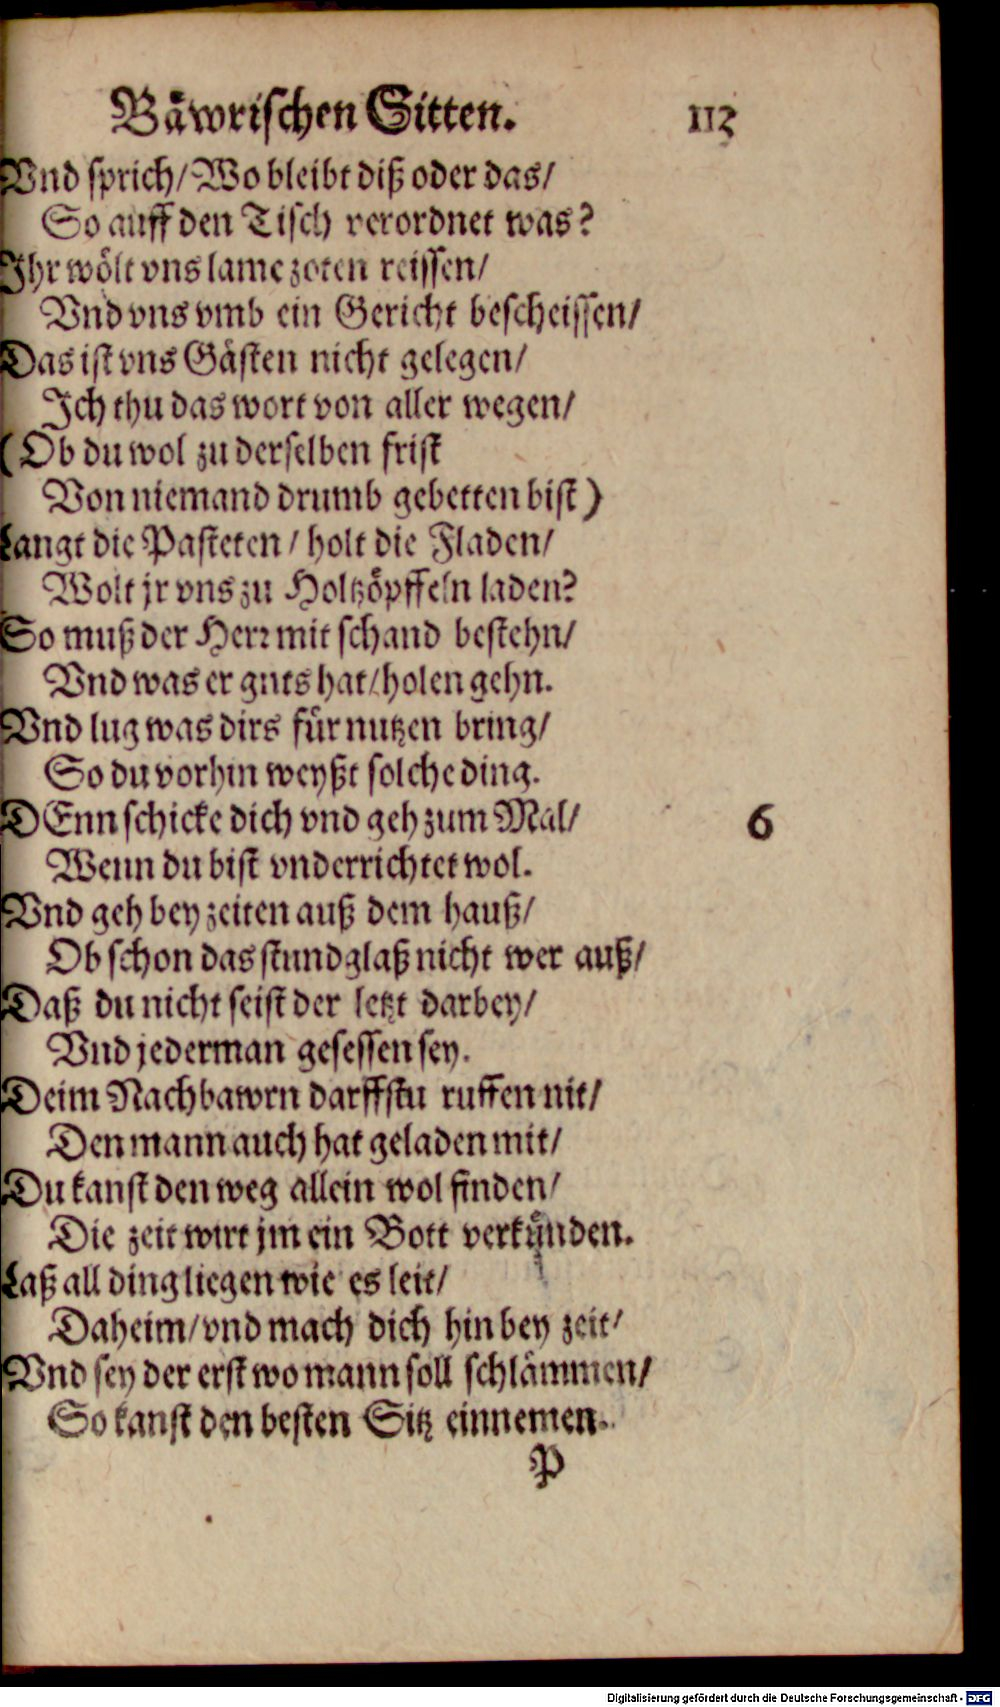 Bäwrischen Sitten. 113
Vnd sprich/ Wo bleibt diß oder das/
So auff den Tisch verordnet was?
Ihr wölt vns lame zoten reissen/
Vnd vns vmb ein Gericht bescheissen/
Das ist vns Gästen nicht gelegen/
Ich thu das wort von aller wegen/
(Ob du wol zu derselben frist
Von niemand drumb gebetten bist)
Langt die Pasteten/ holt die Fladen/
Wolt jr vns zu Holtzöpffeln laden?
So muß der Herr mit schand bestehn/
Vnd was er guts hat/ holen gehn.
Vnd lug was dirs für nutzen bring/
So du vorhin weyßt solche ding.
DEnn schicke dich vnd geh zum Mal/ 6
Wenn du bist vnderrichtet wol.
Vnd geh bey zeiten auß dem hauß/
Ob schon das stundglaß nicht wer auß/
Daß du nicht seist der letzt darbey/
Vnd jederman gesessen sey.
Deim Nachbawrn darffstu ruffen nit/
Den mann auch hat geladen mit/
Du kanst den weg allein wol finden/
Die zeit wirt jm ein Bott verkünden.
Laß all ding liegen wie es leit/
Daheim/ vnd mach dich hin bey zeit/
Vnd sey der erst wo mann soll schlämmen/
So kanst den besten Sitz einnemen.
P
Digitalisierung gefördert durch die Deutsche Forschungsgemeinschaft - DFG